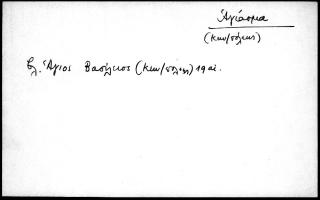 Ἁγίασμα
(Κων/πόλεως)
βλ. Ἅγιος Βασίλειος (Κων/πόλεως) 19 αἰ.